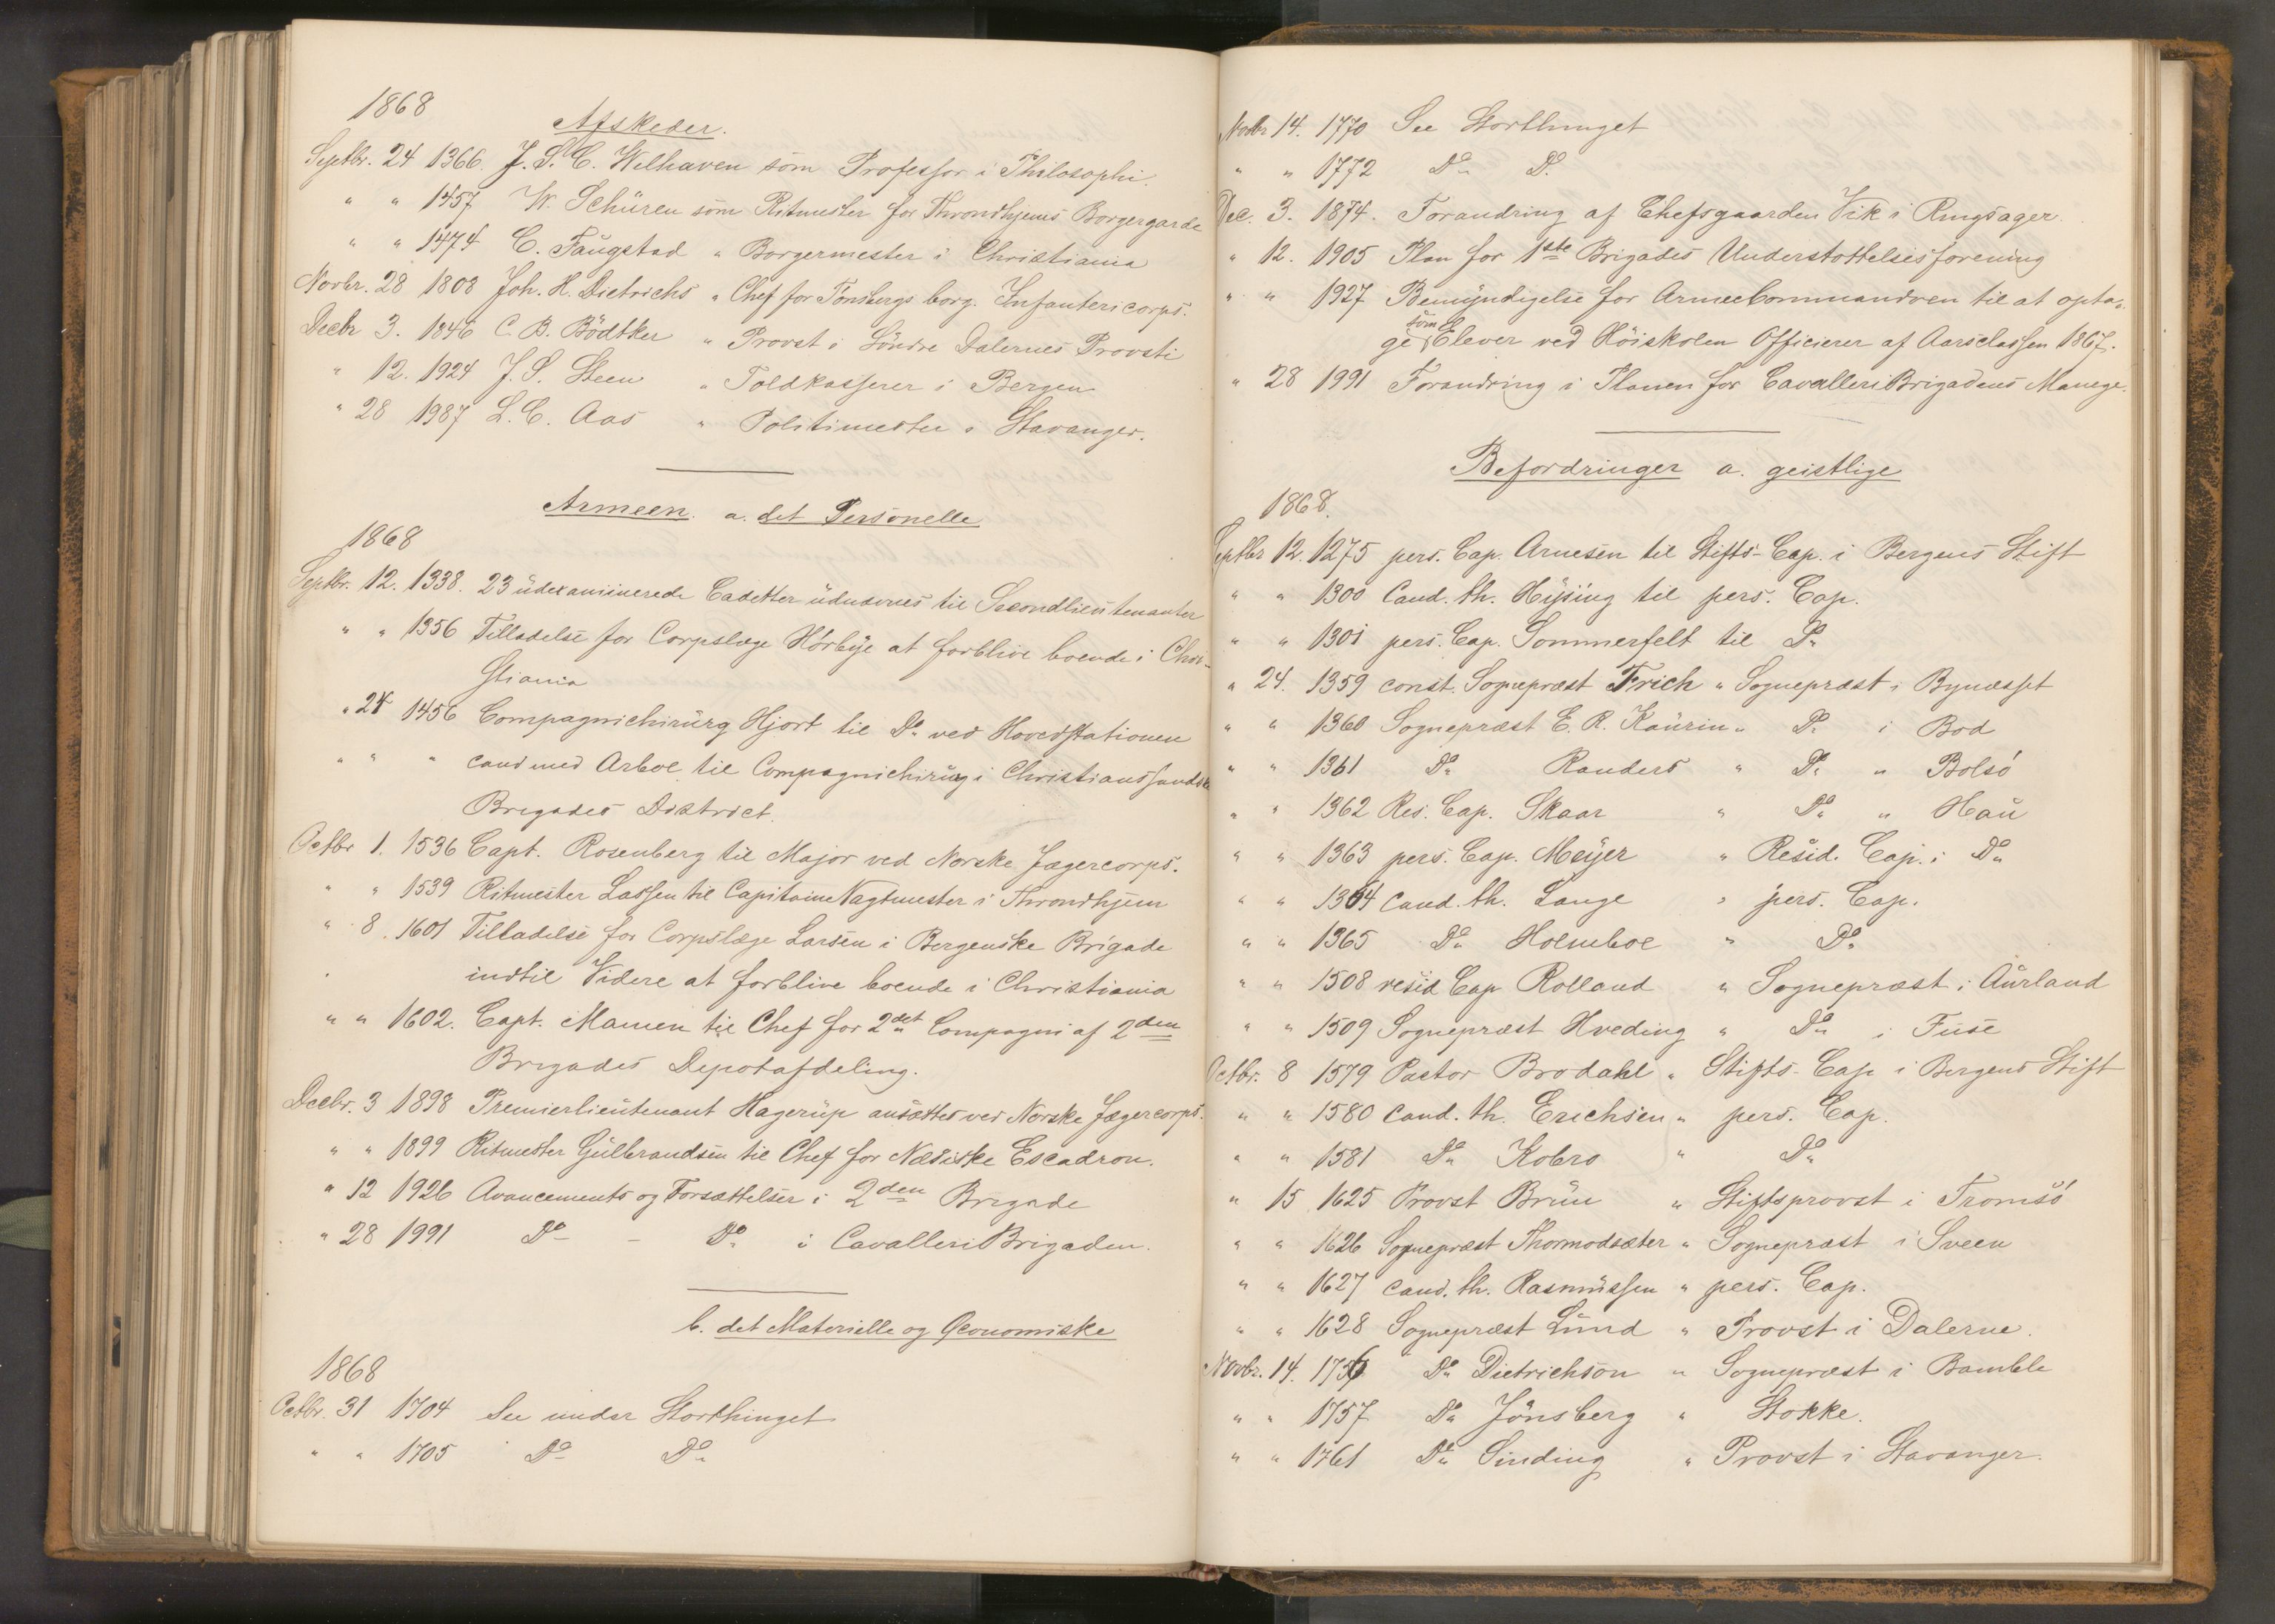 1868
Afskeder.
Septbr. 24 1366. J. S. C. Welhaven som Professor i Philosophi.
" " 1457 W. Schüren som Ritmester for Throndhjems Borgergarde
" " 1474 C. Faugstad " Borgermester i Christiania
Novbr. 28 1808 Joh. H. Dietrichs " Chef for Tönsbergs borg. Infantericorps.
Decbr 3. 1846 C. B. Bödtker " Provst i Söndre Dalernes Provsti
" 12. 1924 J. S. Steen " Toldkasserer i Bergen
" 28 1987 L. C. Aas " Politimester i Stavanger.
Armeen. a. det Personelle
1868
Septbr. 12. 1338. 23 udexaminerede Cadetter udnævnes til Secondlieutenanter
" " 1356 Tilladelse for Corpslæge Hörbye at forblive boende i Chri-
stiania
" 24 1456 Compagnichirurg Hjort til Do ved Hovedstationen
" " " cand med Arboe til Compagnichirurg i Christianssandske
Brigades District.
Octbr 1. 1536 Capt. Rosenberg til Major ved Norske Jægercorps.
" " 1539 Ritmester Lassen til Capitaine Vagtmester i Throndhjem
" 8. 1601 Tilladelse for Corpslæge Larsen i Bergenske Brigade
indtil Videre at forblive boende i Christiania
" " 1602. Capt. Mamen til Chef for 2det Compagni af 2den
Brigades Depotafdeling.
Decbr. 3 1898 Premierlieutenant Hagerup ansættes ved Norske Jægercorps.
" " 1899 Ritmester Gulbrandsen til Chef for Næsiske Escadron.
" 12 1926 Avancements og Forsættelser i 2den Brigade
" 28 1991 Do - Do i CavalleriBrigaden.
b. det Materielle og Oeconomiske
1868
Octbr. 31 1704 See under Storthinget
" " 1705 Do Do
Novbr 14. 1770 See Storthinget
" " 1772 Do Do
Dec. 3. 1874. Forandring af Chefsgaarden Vik i Ringsager.
" 12. 1905 Plan for 1ste Brigades Understøttelsesforening
" " 1927 Bemyndigelse for Armeecommandoen til at opta-
ge som Elever ved Höiskolen Officierer af Aarsclassen 1867.
" 28 1991 Forandring i Planen for CavalleriBrigadens Manege.
Befordringer a. geistlige
1868.
Septbr 12. 1275 pers. Cap. Arnesen til Stifts-Cap. i Bergens Stift
" " 1300 Cand. th. Hysing til pers. Cap.
" " 1301 pers. Cap. Sommerfelt til Do
" 24. 1359 const. Sognepræst Frich " Sognepræst i Bynæsset
" " 1360 Sognepræst E. R. Kaurin " Do i Bod
" " 1361 Do Randers " Do " Bolsö
" " 1362 Res. Cap. Skaar " Do " Hau
" " 1363 pers. Cap. Meyer " Resid. Cap. i Do
" " 1364 Cand. th. Lange " pers. Cap.
" " 1365 Do Holmboe " Do
" " 1508 resid Cap Rolland " Sognepræst i Aurland
" " 1509 Sognepræst Hveding " Do i Fuse
Octbr. 8 1579 Pastor Brodahl " Stifts-Cap i Bergens Stift
" " 1580 cand. th. Erichsen " pers. Cap.
" " 1581 Do Kobro " Do
" 15 1625 Provst Brun " Stiftsprovst i Tromsö
" " 1626 Sognepræst Thormodsæter " Sognepræst i Sveen
" " 1627 cand. th. Rasmussen " pers. Cap.
" " 1628 Sognepræst Lund " Provst i Dalerne.
Novbr. 14. 1756 Do Dietrichson " Sognepræst i Bamble
" " 1757 Do Jönsberg " Stokke.
" " 1761 Do Sinding " Provst i Stavanger.